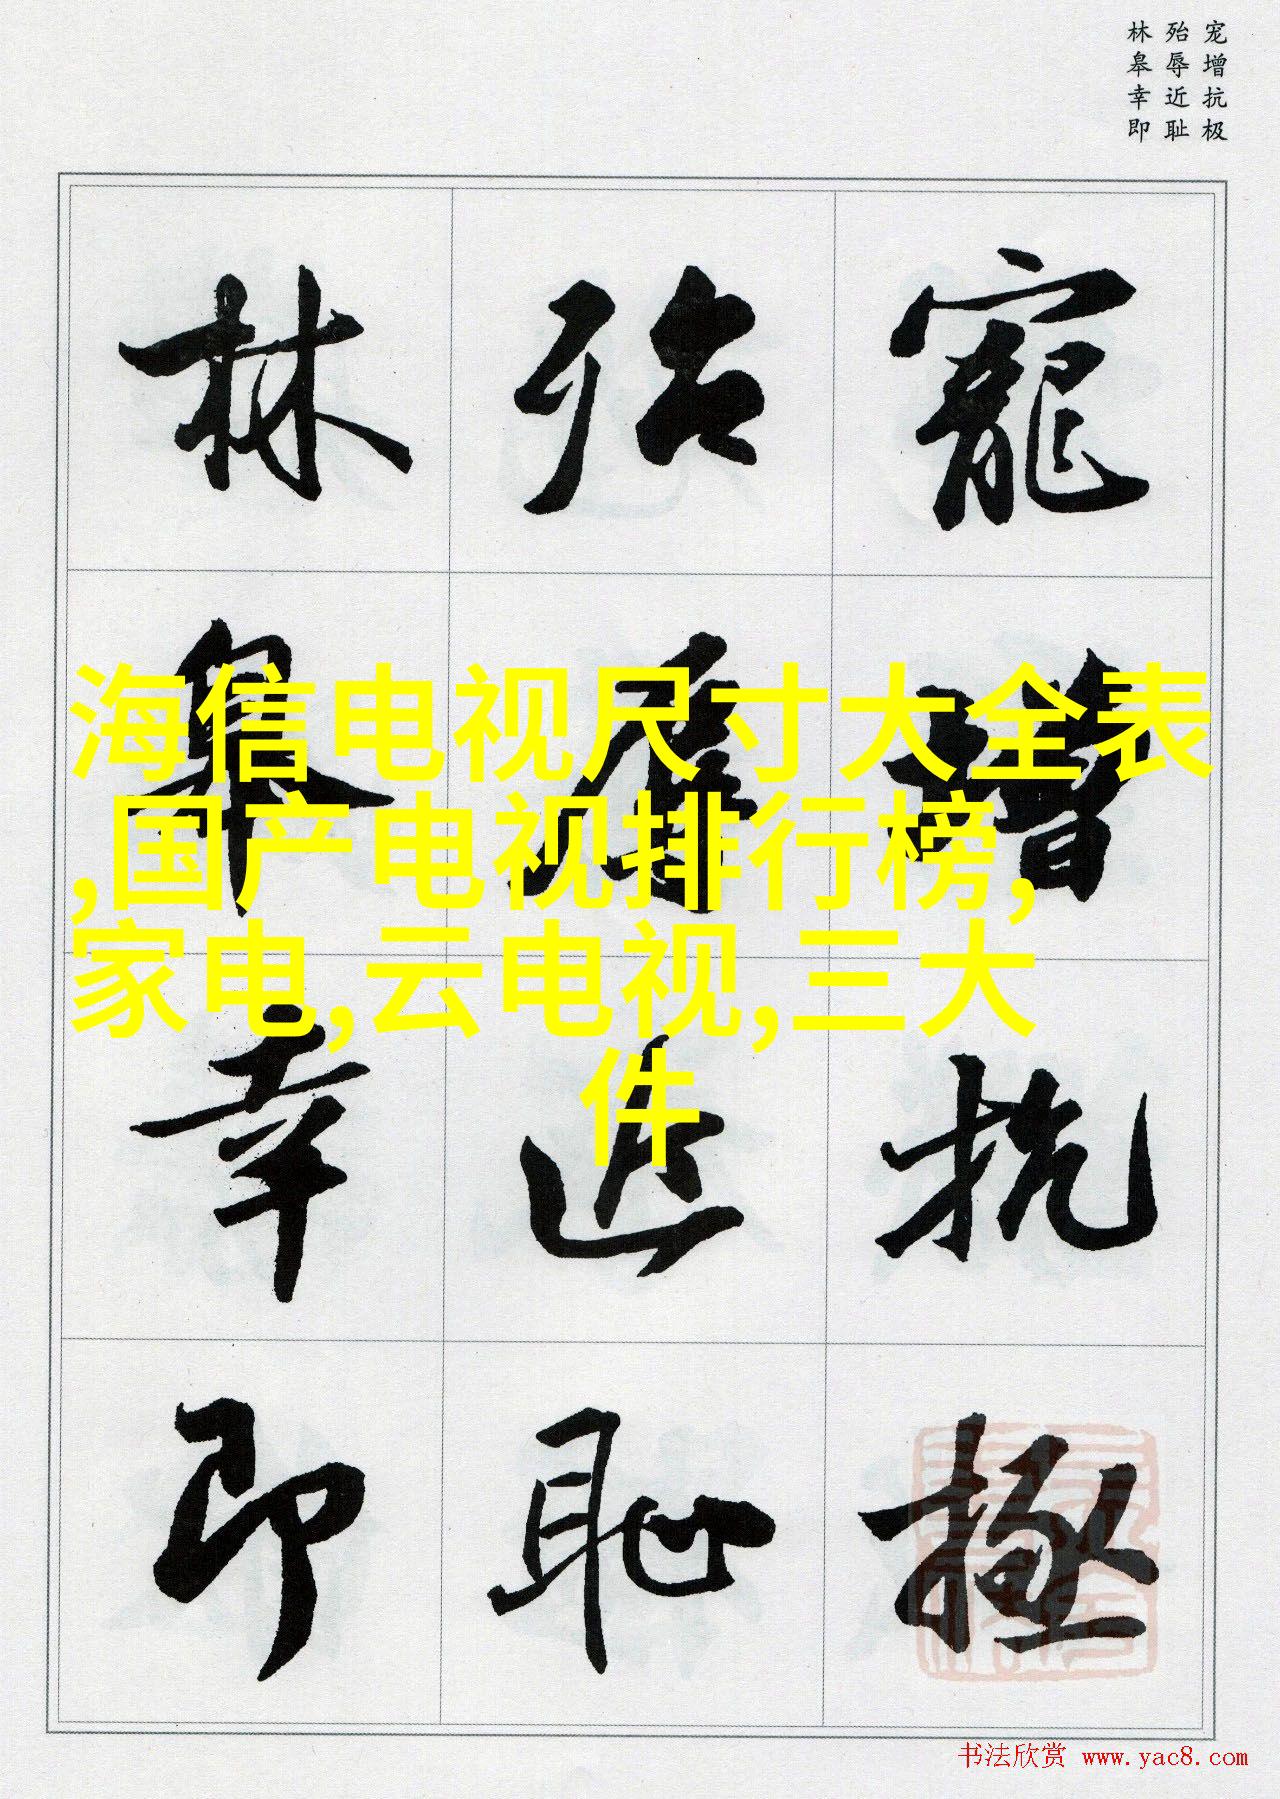 宠增抗极
殆辱近耻
林皋幸即
寵增抗極
殆辱近恥
林皋幸即
海信电视尺寸大全表
,国产电视排行榜,
家电,云电视,三大
件
书法欣赏 www.yac8.com